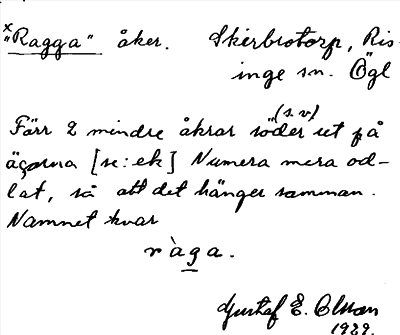 x "Ragga" åker. Skerbrotorp, Ris-
inge sn. Ögl
(s.v)
Förr 2 mindre åkrar söder ut på
ägorna [se: ek] Numera mera od-
lat, så att det hänger samman.
Namnet kvar
ràga.
Gustaf E. Olsson
1929.